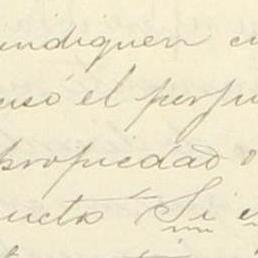 indiquen
usó el perju
propiedad o
ucta Si e